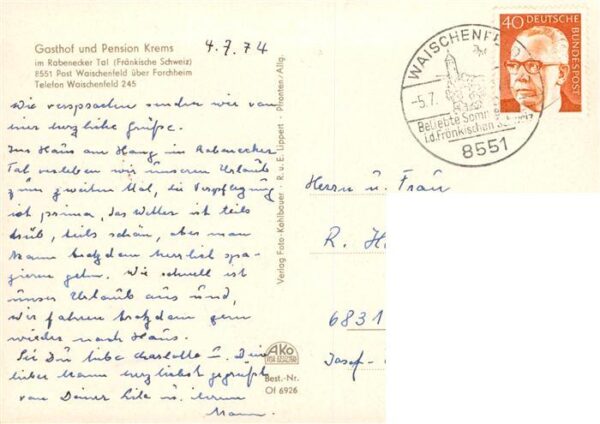 Gasthof und Pension Krems
im Rabenecker Tal (Fränkische Schweiz)
8551 Post Waischenfeld über Forchheim
Telefon Waischenfeld 245
4.7.74
Wie versprochen senden wir von
hier herzliche Grüße.
Im Haus am Hang im Rabenecker
Tal verleben wir unseren Urlaub
zum zweiten Mal, die Verpflegung
ist prima, das Wetter ist teils
trüb, teils schön, aber man
kann trotzdem herrlich spa-
zieren gehn. Wie schnell ist
unser Urlaub aus und,
wir fahren trotzdem gern
wieder nach Haus.
Sei Du liebe Charlotte u. Dein
lieber Mann herzlichst gegrüßt
von Deiner u.
Mann.
Verlag Foto-Kohlbauer · R. u. E. Lippert · Pfronten/Allg.
AKO
Best.-Nr.
Of 6926
WAISCHENFELD
-5.7.
Beliebte Somm
i.d. Fränkischen
8551
40 DEUTSCHE
BUNDESPOST
Herrn u. Frau
R. H
6831
Josef-